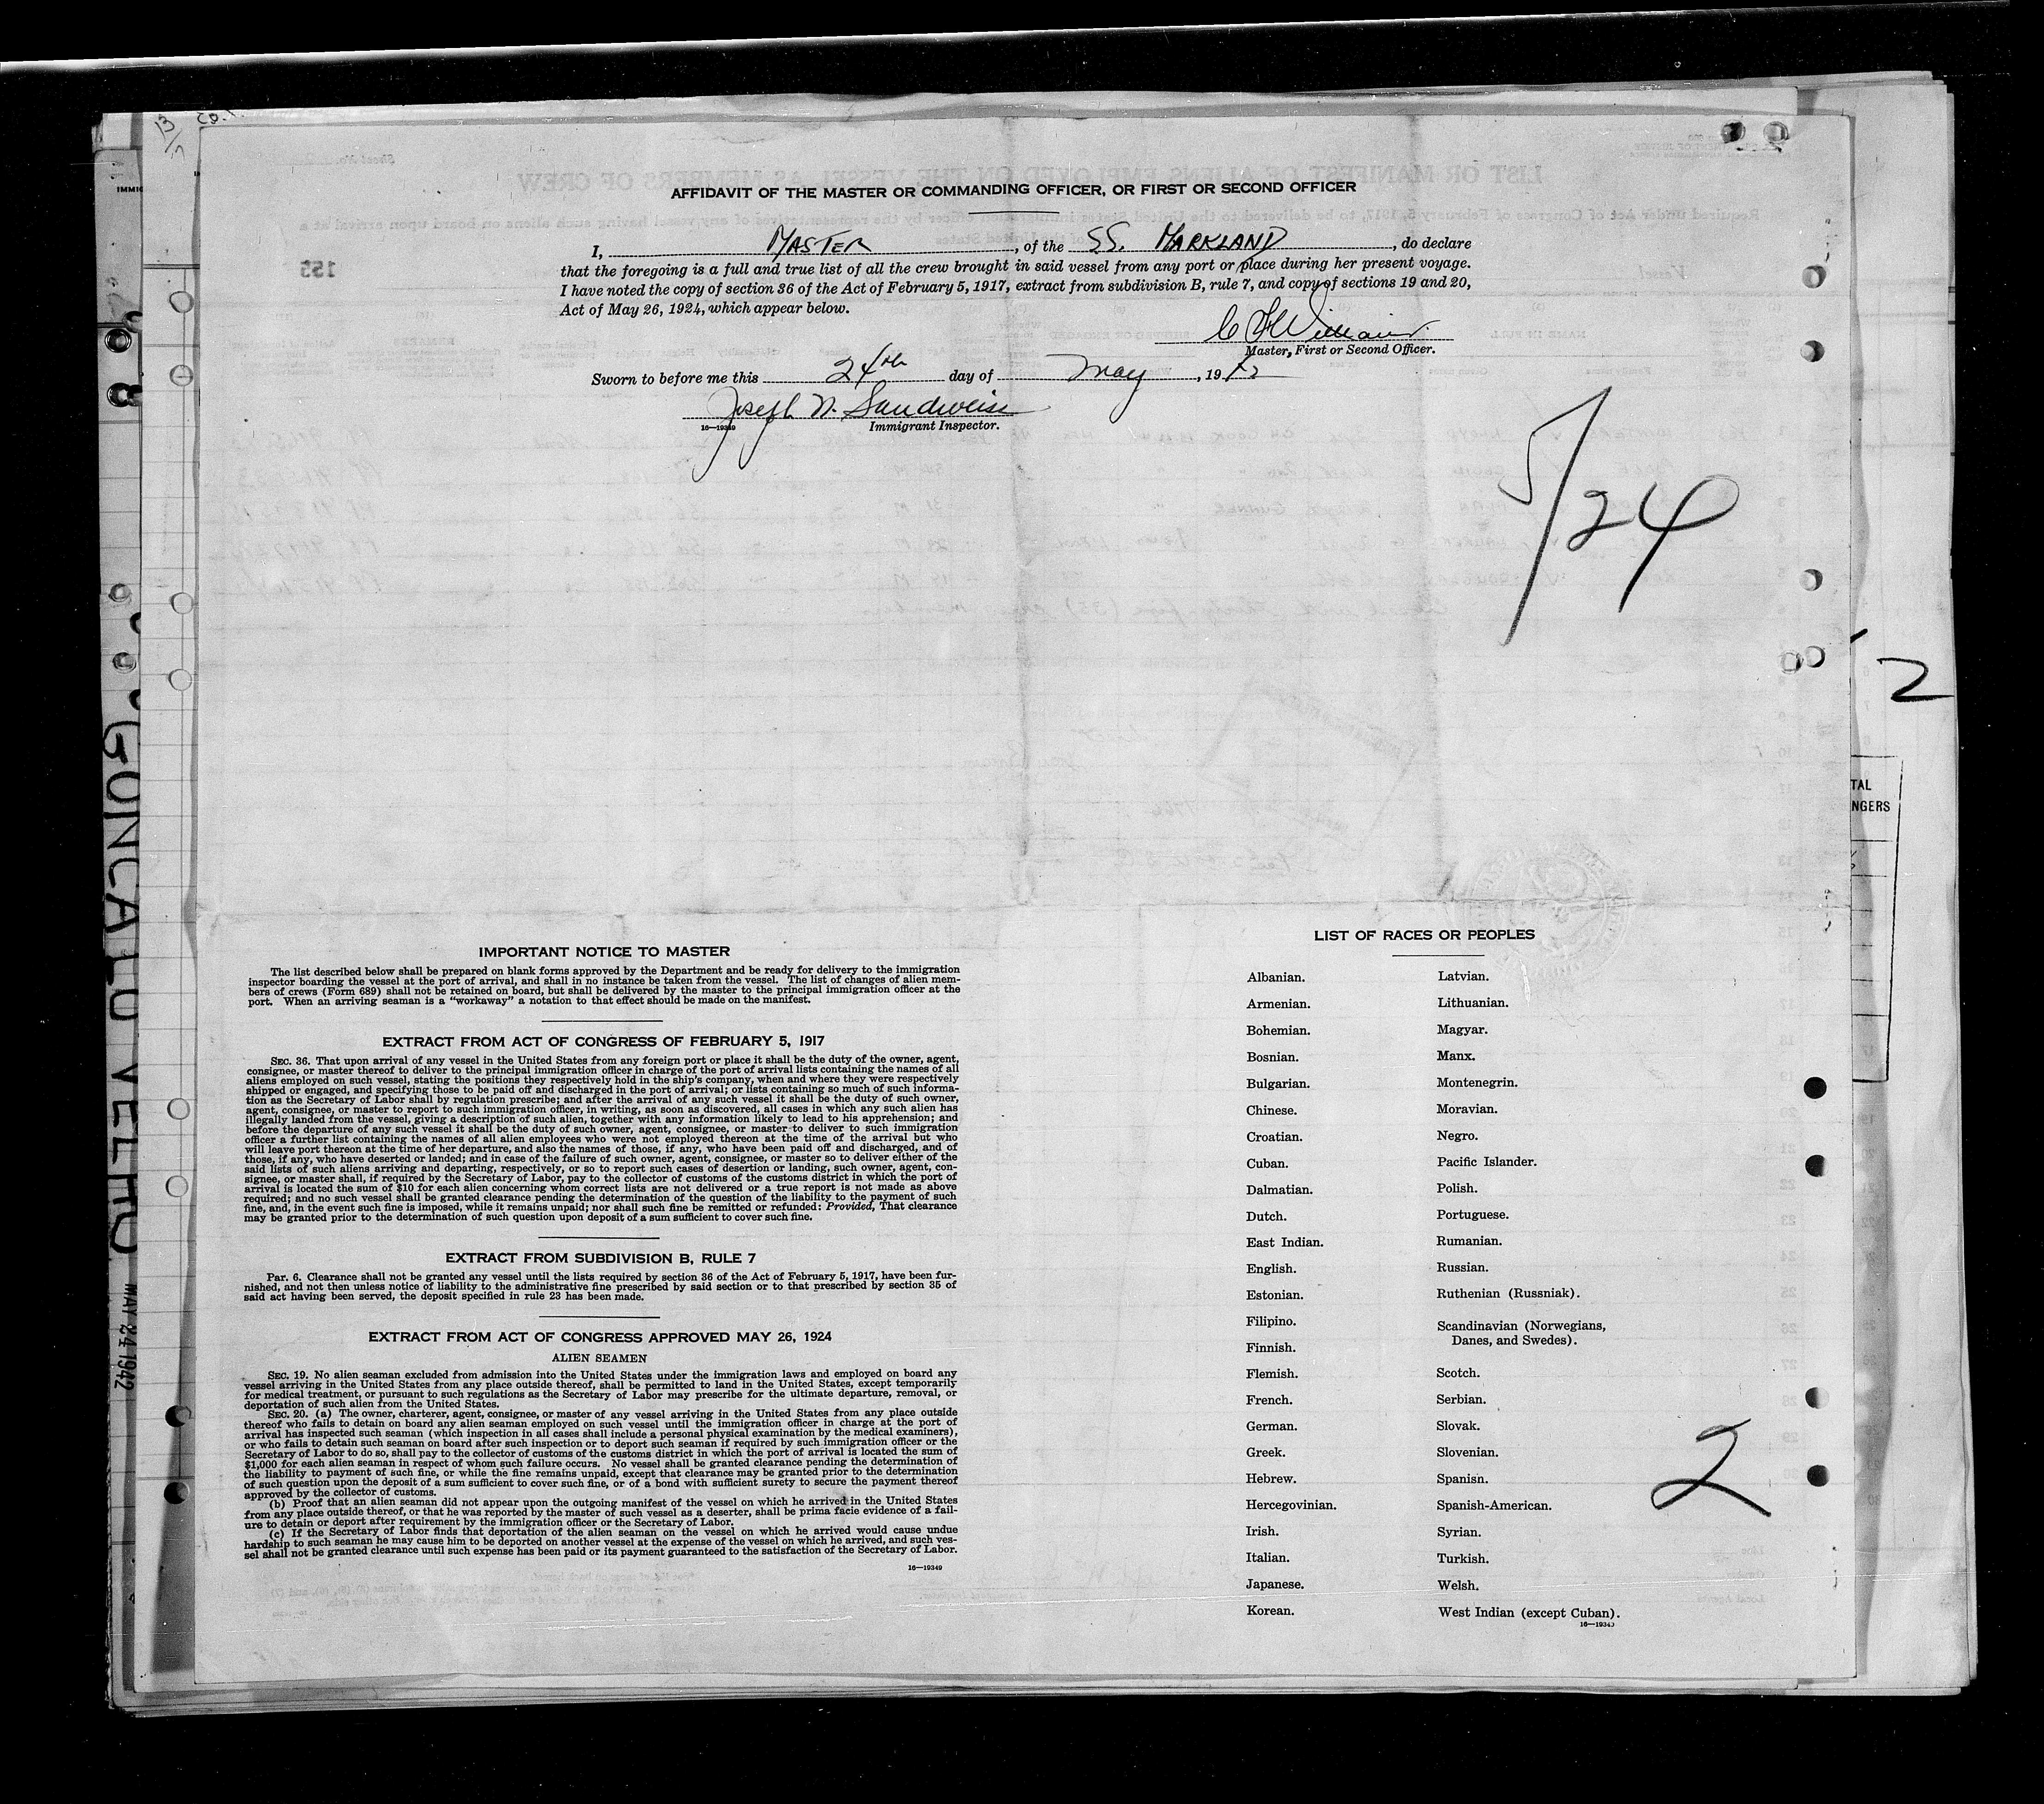 AFFIDAVIT OF THE MASTER OR COMMANDING OFFICER, OR FIRST OR SECOND OFFICER
I, MASTER, of the SS. MARKLAND, do declare
that the foregoing is a full and true list of all the crew brought in said vessel from any port or place during her present voyage.
I have noted the copy of section 36 of the Act of February 5, 1917, extract from subdivision B, rule 7, and copy of sections 19 and 20,
Act of May 26, 1924, which appear below.
Master, First or Second Officer.
Sworn to before me this 24th day of May, 1942
Joseph N. Sandweiss
16—19349 Immigrant Inspector.
5/24
2
TAL
NGERS
IMMIG
GONCALO VELHO
MAY 24 1942
IMPORTANT NOTICE TO MASTER
The list described below shall be prepared on blank forms approved by the Department and be ready for delivery to the immigration
inspector boarding the vessel at the port of arrival, and shall in no instance be taken from the vessel. The list of changes of alien mem-
bers of crews (Form 689) shall not be retained on board, but shall be delivered by the master to the principal immigration officer at the
port. When an arriving seaman is a "workaway" a notation to that effect should be made on the manifest.
EXTRACT FROM ACT OF CONGRESS OF FEBRUARY 5, 1917
SEC. 36. That upon arrival of any vessel in the United States from any foreign port or place it shall be the duty of the owner, agent,
consignee, or master thereof to deliver to the principal immigration officer in charge of the port of arrival lists containing the names of all
aliens employed on such vessel, stating the positions they respectively hold in the ship's company, when and where they were respectively
shipped or engaged, and specifying those to be paid off and discharged in the port of arrival; or lists containing so much of such informa-
tion as the Secretary of Labor shall by regulation prescribe; and after the arrival of any such vessel it shall be the duty of such owner,
agent, consignee, or master to report to such immigration officer, in writing, as soon as discovered, all cases in which any such alien has
illegally landed from the vessel, giving a description of such alien, together with any information likely to lead to his apprehension; and
before the departure of any such vessel it shall be the duty of such owner, agent, consignee, or master to deliver to such immigration
officer a further list containing the names of all alien employees who were not employed thereon at the time of the arrival but who
will leave port thereon at the time of her departure, and also the names of those, if any, who have been paid off and discharged, and of
those, if any, who have deserted or landed; and in case of the failure of such owner, agent, consignee, or master so to deliver either of the
said lists of such aliens arriving and departing, respectively, or so to report such cases of desertion or landing, such owner, agent, con-
signee, or master shall, if required by the Secretary of Labor, pay to the collector of customs of the customs district in which the port of
arrival is located the sum of $10 for each alien concerning whom correct lists are not delivered or a true report is not made as above
required; and no such vessel shall be granted clearance pending the determination of the question of the liability to the payment of such
fine, and, in the event such fine is imposed, while it remains unpaid; nor shall such fine be remitted or refunded: Provided, That clearance
may be granted prior to the determination of such question upon deposit of a sum sufficient to cover such fine.
EXTRACT FROM SUBDIVISION B, RULE 7
Par. 6. Clearance shall not be granted any vessel until the lists required by section 36 of the Act of February 5, 1917, have been fur-
nished, and not then unless notice of liability to the administrative fine prescribed by said section or to that prescribed by section 35 of
said act having been served, the deposit specified in rule 23 has been made.
EXTRACT FROM ACT OF CONGRESS APPROVED MAY 26, 1924
ALIEN SEAMEN
SEC. 19. No alien seaman excluded from admission into the United States under the immigration laws and employed on board any
vessel arriving in the United States from any place outside thereof, shall be permitted to land in the United States, except temporarily
for medical treatment, or pursuant to such regulations as the Secretary of Labor may prescribe for the ultimate departure, removal, or
deportation of such alien from the United States.
SEC. 20. (a) The owner, charterer, agent, consignee, or master of any vessel arriving in the United States from any place outside
thereof who fails to detain on board any alien seaman employed on such vessel until the immigration officer in charge at the port of
arrival has inspected such seaman (which inspection in all cases shall include a personal physical examination by the medical examiners),
or who fails to detain such seaman on board after such inspection or to deport such seaman if required by such immigration officer or the
Secretary of Labor to do so, shall pay to the collector of customs of the customs district in which the port of arrival is located the sum of
$1,000 for each alien seaman in respect of whom such failure occurs. No vessel shall be granted clearance pending the determination of
the liability to payment of such fine, or while the fine remains unpaid, except that clearance may be granted prior to the determination
of such question upon the deposit of a sum sufficient to cover such fine, or of a bond with sufficient surety to secure the payment thereof
approved by the collector of customs.
(b) Proof that an alien seaman did not appear upon the outgoing manifest of the vessel on which he arrived in the United States
from any place outside thereof, or that he was reported by the master of such vessel as a deserter, shall be prima facie evidence of a fail-
ure to detain or deport after requirement by the immigration officer or the Secretary of Labor.
(c) If the Secretary of Labor finds that deportation of the alien seaman on the vessel on which he arrived would cause undue
hardship to such seaman he may cause him to be deported on another vessel at the expense of the vessel on which he arrived, and such ves-
sel shall not be granted clearance until such expense has been paid or its payment guaranteed to the satisfaction of the Secretary of Labor.
16—19349
LIST OF RACES OR PEOPLES
Albanian.
Armenian.
Bohemian.
Bosnian.
Bulgarian.
Chinese.
Croatian.
Cuban.
Dalmatian.
Dutch.
East Indian.
English.
Estonian.
Filipino.
Finnish.
Flemish.
French.
German.
Greek.
Hebrew.
Hercegovinian.
Irish.
Italian.
Japanese.
Korean.
Latvian.
Lithuanian.
Magyar.
Manx.
Montenegrin.
Moravian.
Negro.
Pacific Islander.
Polish.
Portuguese.
Rumanian.
Russian.
Ruthenian (Russniak).
Scandinavian (Norwegians,
Danes, and Swedes).
Scotch.
Serbian.
Slovak.
Slovenian.
Spanish.
Spanish-American.
Syrian.
Turkish.
Welsh.
West Indian (except Cuban).
2